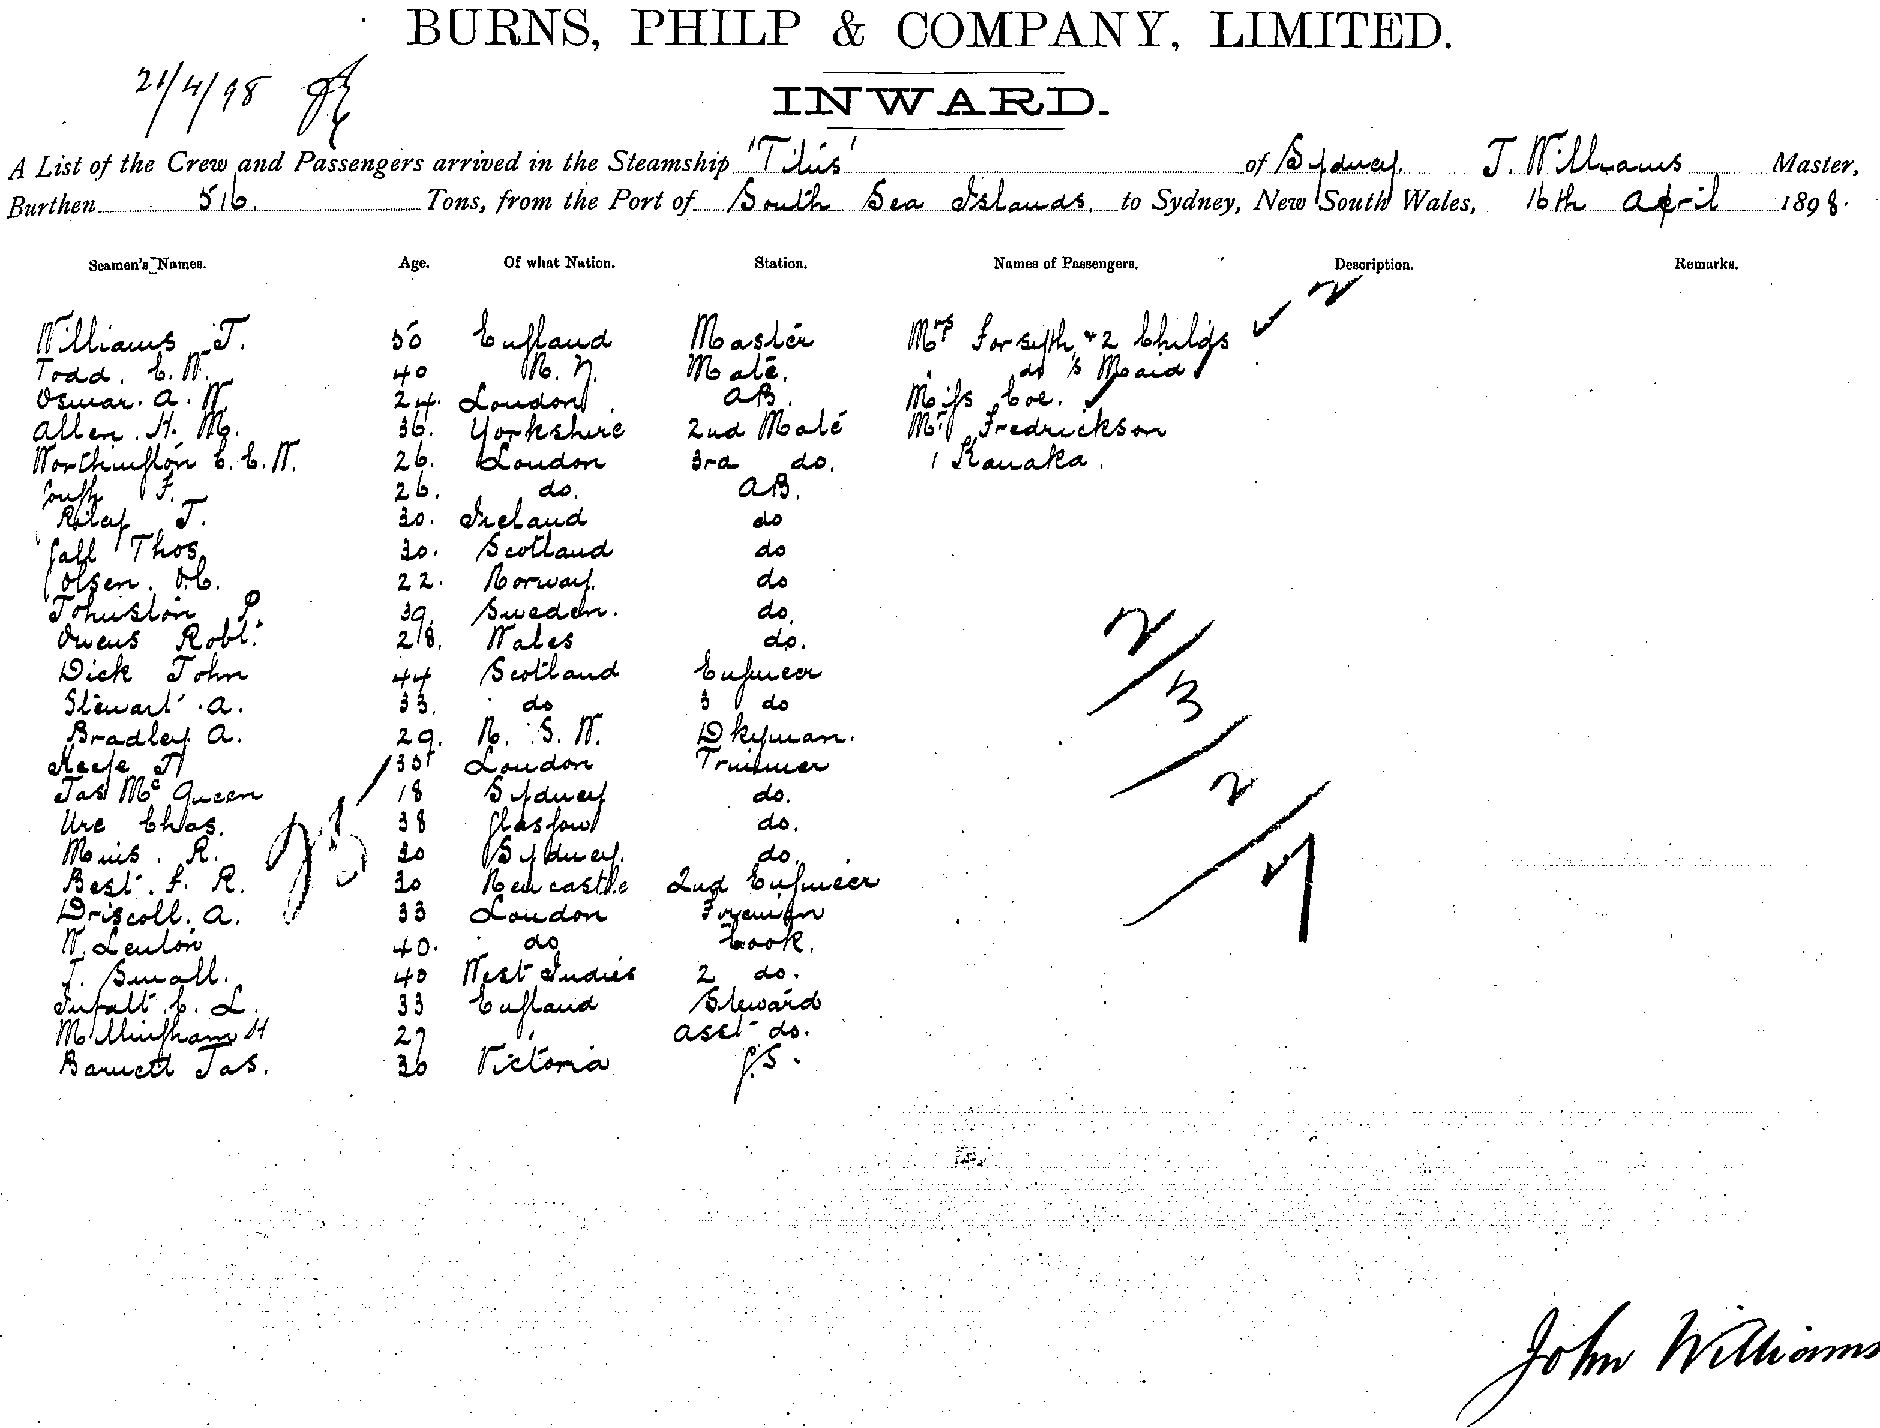 BURNS, PHILP & COMPANY, LIMITED.
21/4/98
INWARD.
A List of the Crew and Passengers arrived in the Steamship 'Titus' of Sydney. J. Williams Master,
Burthen 516. Tons, from the Port of South Sea Islands. to Sydney, New South Wales, 16th April 1898.
Seamen's Names. Age. Of what Nation. Station. Names of Passengers. Description. Remarks.
2
Williams J. 50 England Master Mrs Forsyth & 2 Childs
Todd. C. W. 40 N. Z. Mate. do s Maid
Osmar. A. W 24. London AB. Miss Coe.
Allen. H. M. 36. Yorkshire 2nd Mate Mr Fredrickson
Worthington C. C. W. 26. London 3rd do. 1 Kanaka.
F. 26. do. AB.
Riley T. 30. Ireland do
Gall Thos 30. Scotland do
Olsen. 22. Norway. do
Johnston P 39. Sweden. do.
Owens Robt. 28. Wales do.
Dick John 44 Scotland Engineer
Stewart A. 33. do 3 do
Bradley A. 29. N. S. W. Dkyman.
Keefe J 35 London Trimmer
Jas McQueen 18 Sydney do.
Ure Chas. 38 Glasgow do.
R. 30 Sydney. do.
Best. F. R. 30 Newcastle 2nd Engineer
Driscoll. A. 33 London Foreman
W. Lenton 40. do Cook.
J. Small. 40 West Indies 2 do.
C. L. 33 England Steward
Millingham H 27 asst do.
Barnett Jas. 36 Victoria G.S.
25
2/
3/
2/
7
John Williams